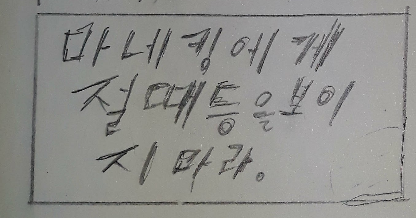 마네킹에게
절때등을보이
지마라.